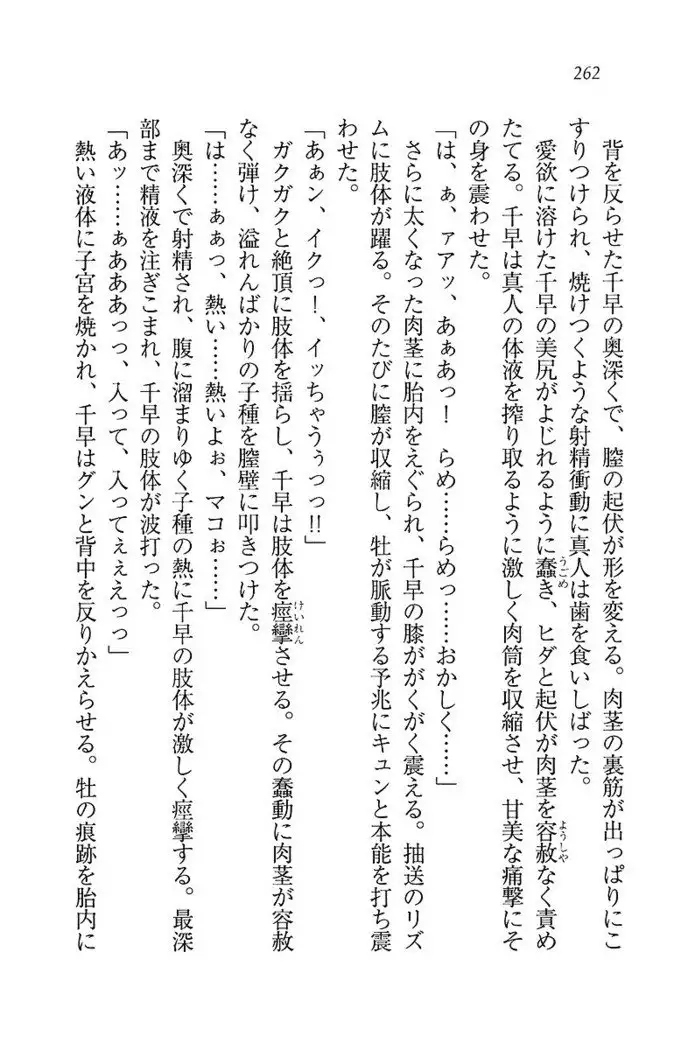 262
背を反らせた千早の奥深くで、膣の起伏が形を変える。肉茎の裏筋が出っぱりにこ
すりつけられ、焼けつくような射精衝動に真人は歯を食いしばった。
愛欲に溶けた千早の美尻がよじれるように蠢き、ヒダと起伏が肉茎を容赦なく責め
たてる。千早は真人の体液を搾り取るように激しく肉筒を収縮させ、甘美な痛撃にそ
の身を震わせた。
「は、ぁ、ァアッ、あぁあっ！　らめ……らめっ……おかしく……」
さらに太くなった肉茎に胎内をえぐられ、千早の膝ががくがく震える。抽送のリズ
ムに肢体が躍る。そのたびに膣が収縮し、牡が脈動する予兆にキュンと本能を打ち震
わせた。
「あぁン、イクっ！、イッちゃうぅっっ!!」
ガクガクと絶頂に肢体を揺らし、千早は肢体を痙攣させる。その蠢動に肉茎が容赦
なく弾け、溢れんばかりの子種を膣壁に叩きつけた。
「は……ぁぁっ、熱い……熱いよぉ、マコぉ……」
奥深くで射精され、腹に溜まりゆく子種の熱に千早の肢体が激しく痙攣する。最深
部まで精液を注ぎこまれ、千早の肢体が波打った。
「あッ……ぁあああっっ、入って、入ってぇええっっ」
熱い液体に子宮を焼かれ、千早はグンと背中を反りかえらせる。牡の痕跡を胎内に